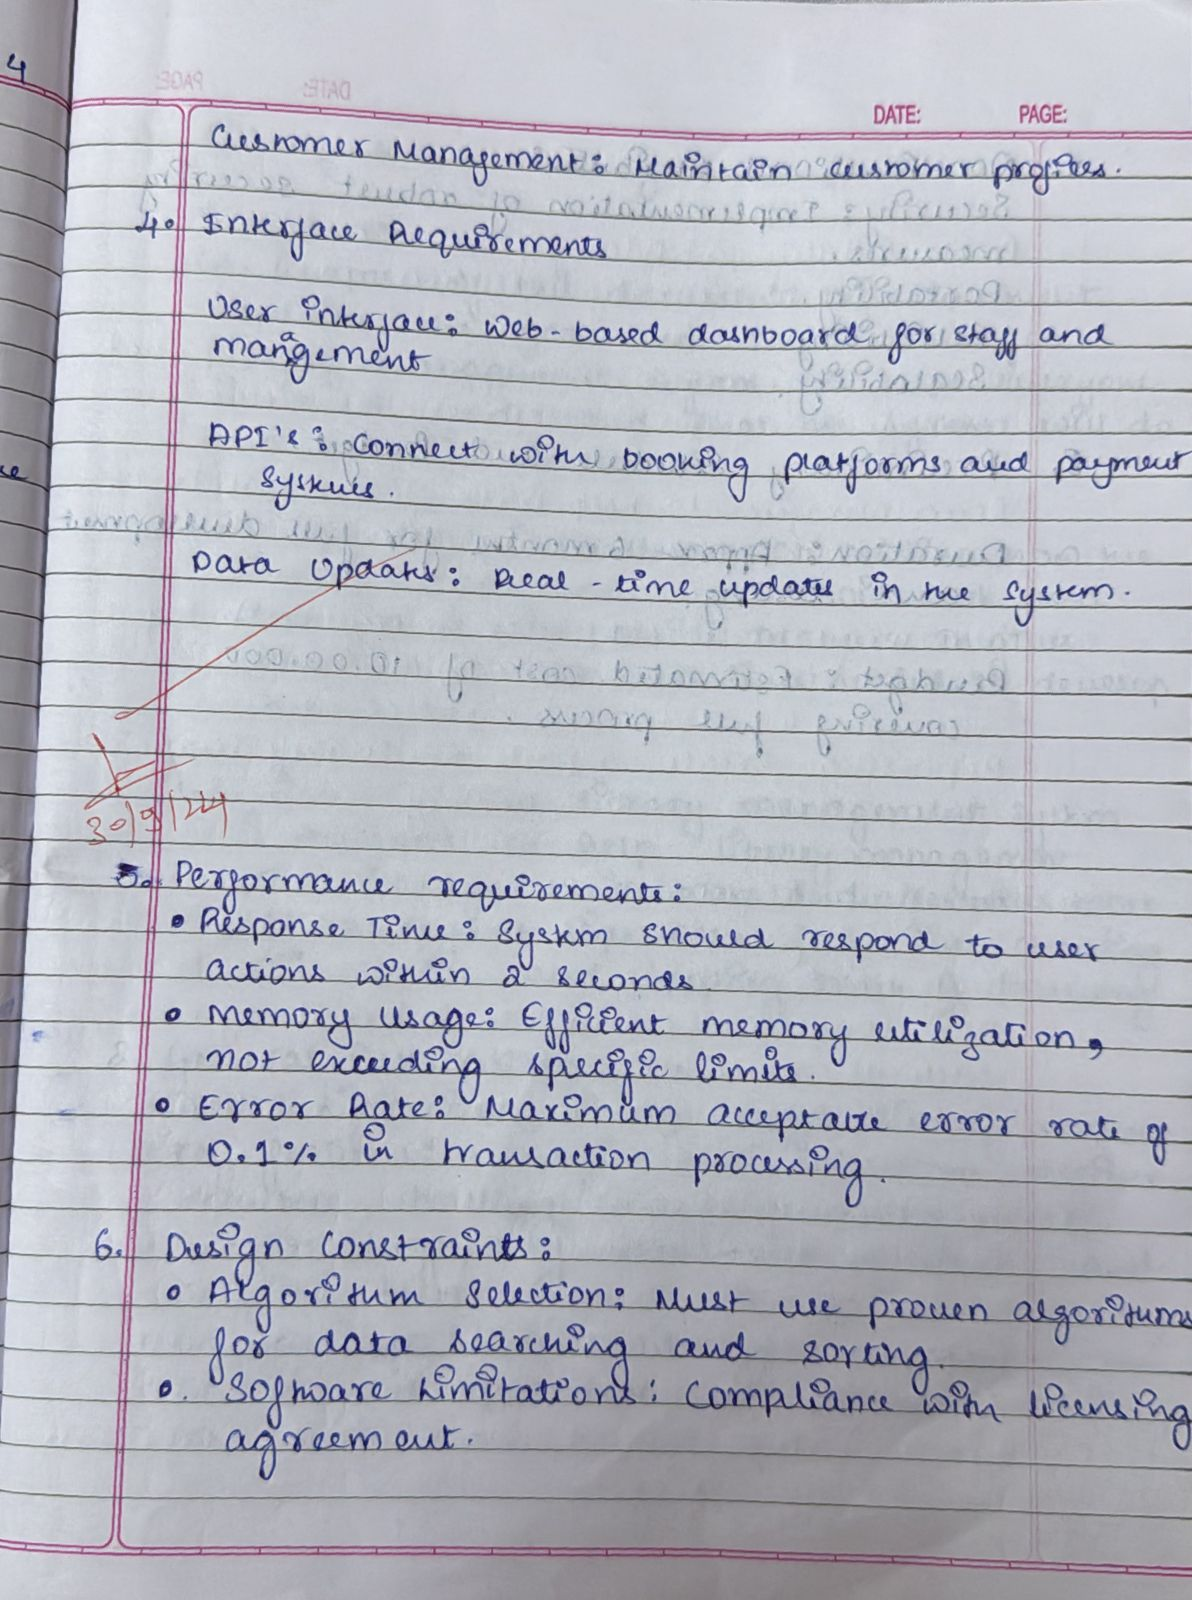 4
DATE: PAGE:
Customer Management: Maintain customer profiles.
4. Interface Requirements
User interface: Web-based dashboard for staff and
management
API's: Connect with booking platforms and payment
systems.
Data Updates: Real-time updates in the system.
30/9/24
5. Performance requirements:
• Response Time: System should respond to user
actions within 2 seconds.
• Memory usage: Efficient memory utilization,
not exceeding specific limits.
• Error Rate: Maximum acceptable error rate of
0.1% in transaction processing.
6. Design Constraints:
• Algorithm Selection: Must use proven algorithms
for data searching and sorting.
• Software Limitations: Compliance with licensing
agreement.